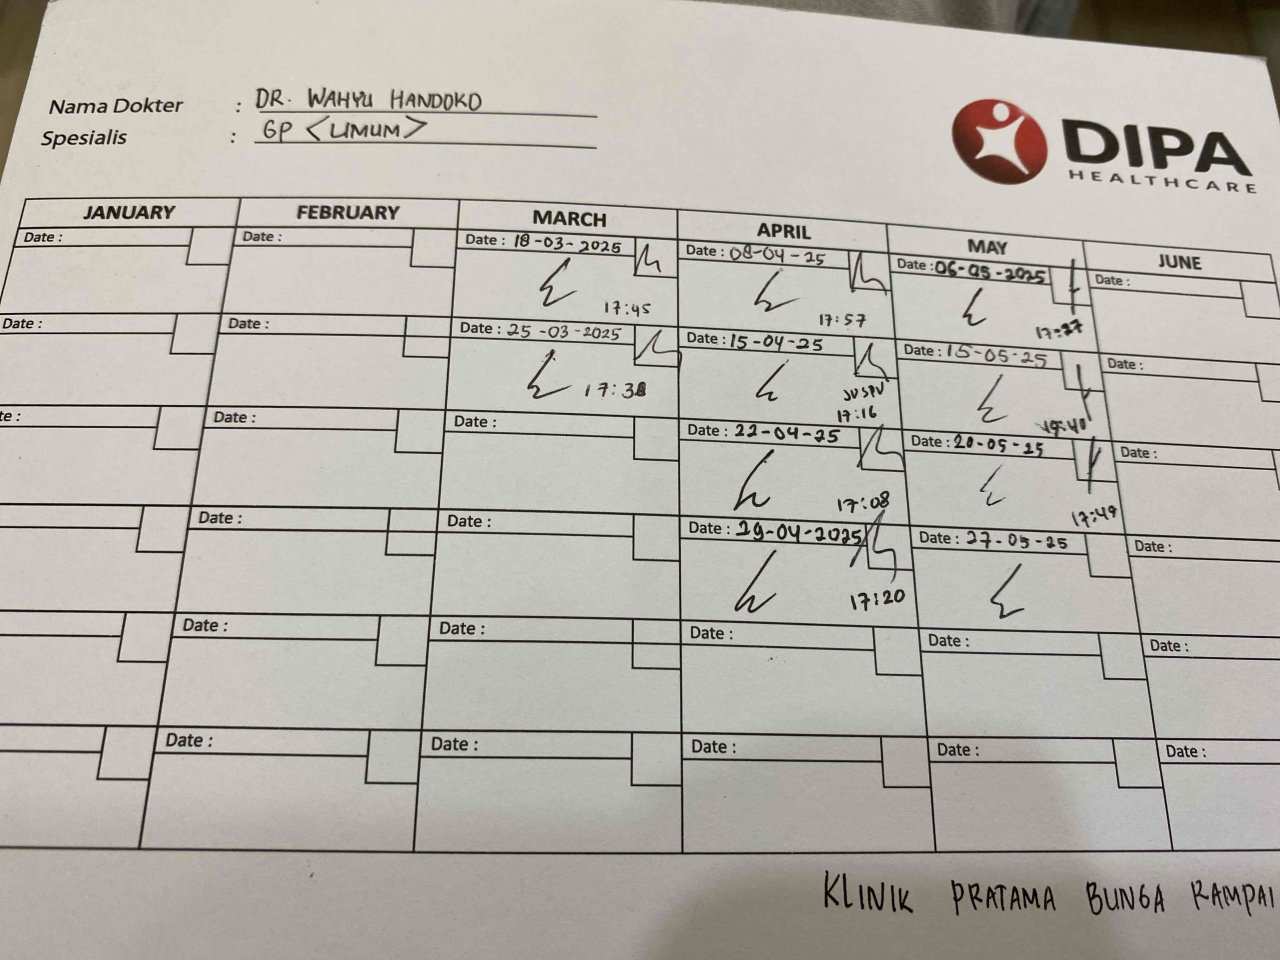 Nama Dokter : DR. WAHYU HANDOKO
Spesialis : GP <UMUM>
DIPA
HEALTHCARE
JANUARY FEBRUARY MARCH APRIL MAY JUNE
Date : Date : Date : 18-03-2025 Date : 08-04-25 Date : 06-05-2025 Date :
17:45 17:57 17:27
Date : Date : Date : 25-03-2025 Date : 15-04-25 Date : 15-05-25 Date :
17:38 17:16 19:40
te : Date : Date : Date : 22-04-25 Date : 20-05-25 Date :
17:08 17:49
Date : Date : Date : 29-04-2025 Date : 27-05-25 Date :
17:20
Date : Date : Date : Date : Date :
Date : Date : Date : Date : Date :
KLINIK PRATAMA BUNGA RAMPAI